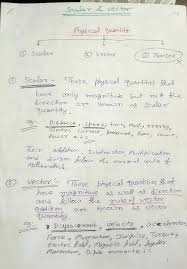 Scalar & Vector
Physical quantity
① Scalar ② Vector ③ Tensor
① Scalar - Those physical quantities that
have only magnitude but not the
direction are known as scalar
quantity.
eg: Distance, speed, time, mass, energy,
electric current, pressure, power,
Their addition, subtraction, multiplication
and division follow the normal rule of
mathematics.
② Vector - Those physical quantities that
have magnitude as well as direction
and follow the rule of vector
addition are known as vector
quantity.
eg: Displacement, velocity, acceleration,
Force, Momentum, Impulse, Torque,
electric field, Magnetic field, Angular
Momentum, Dipole moment